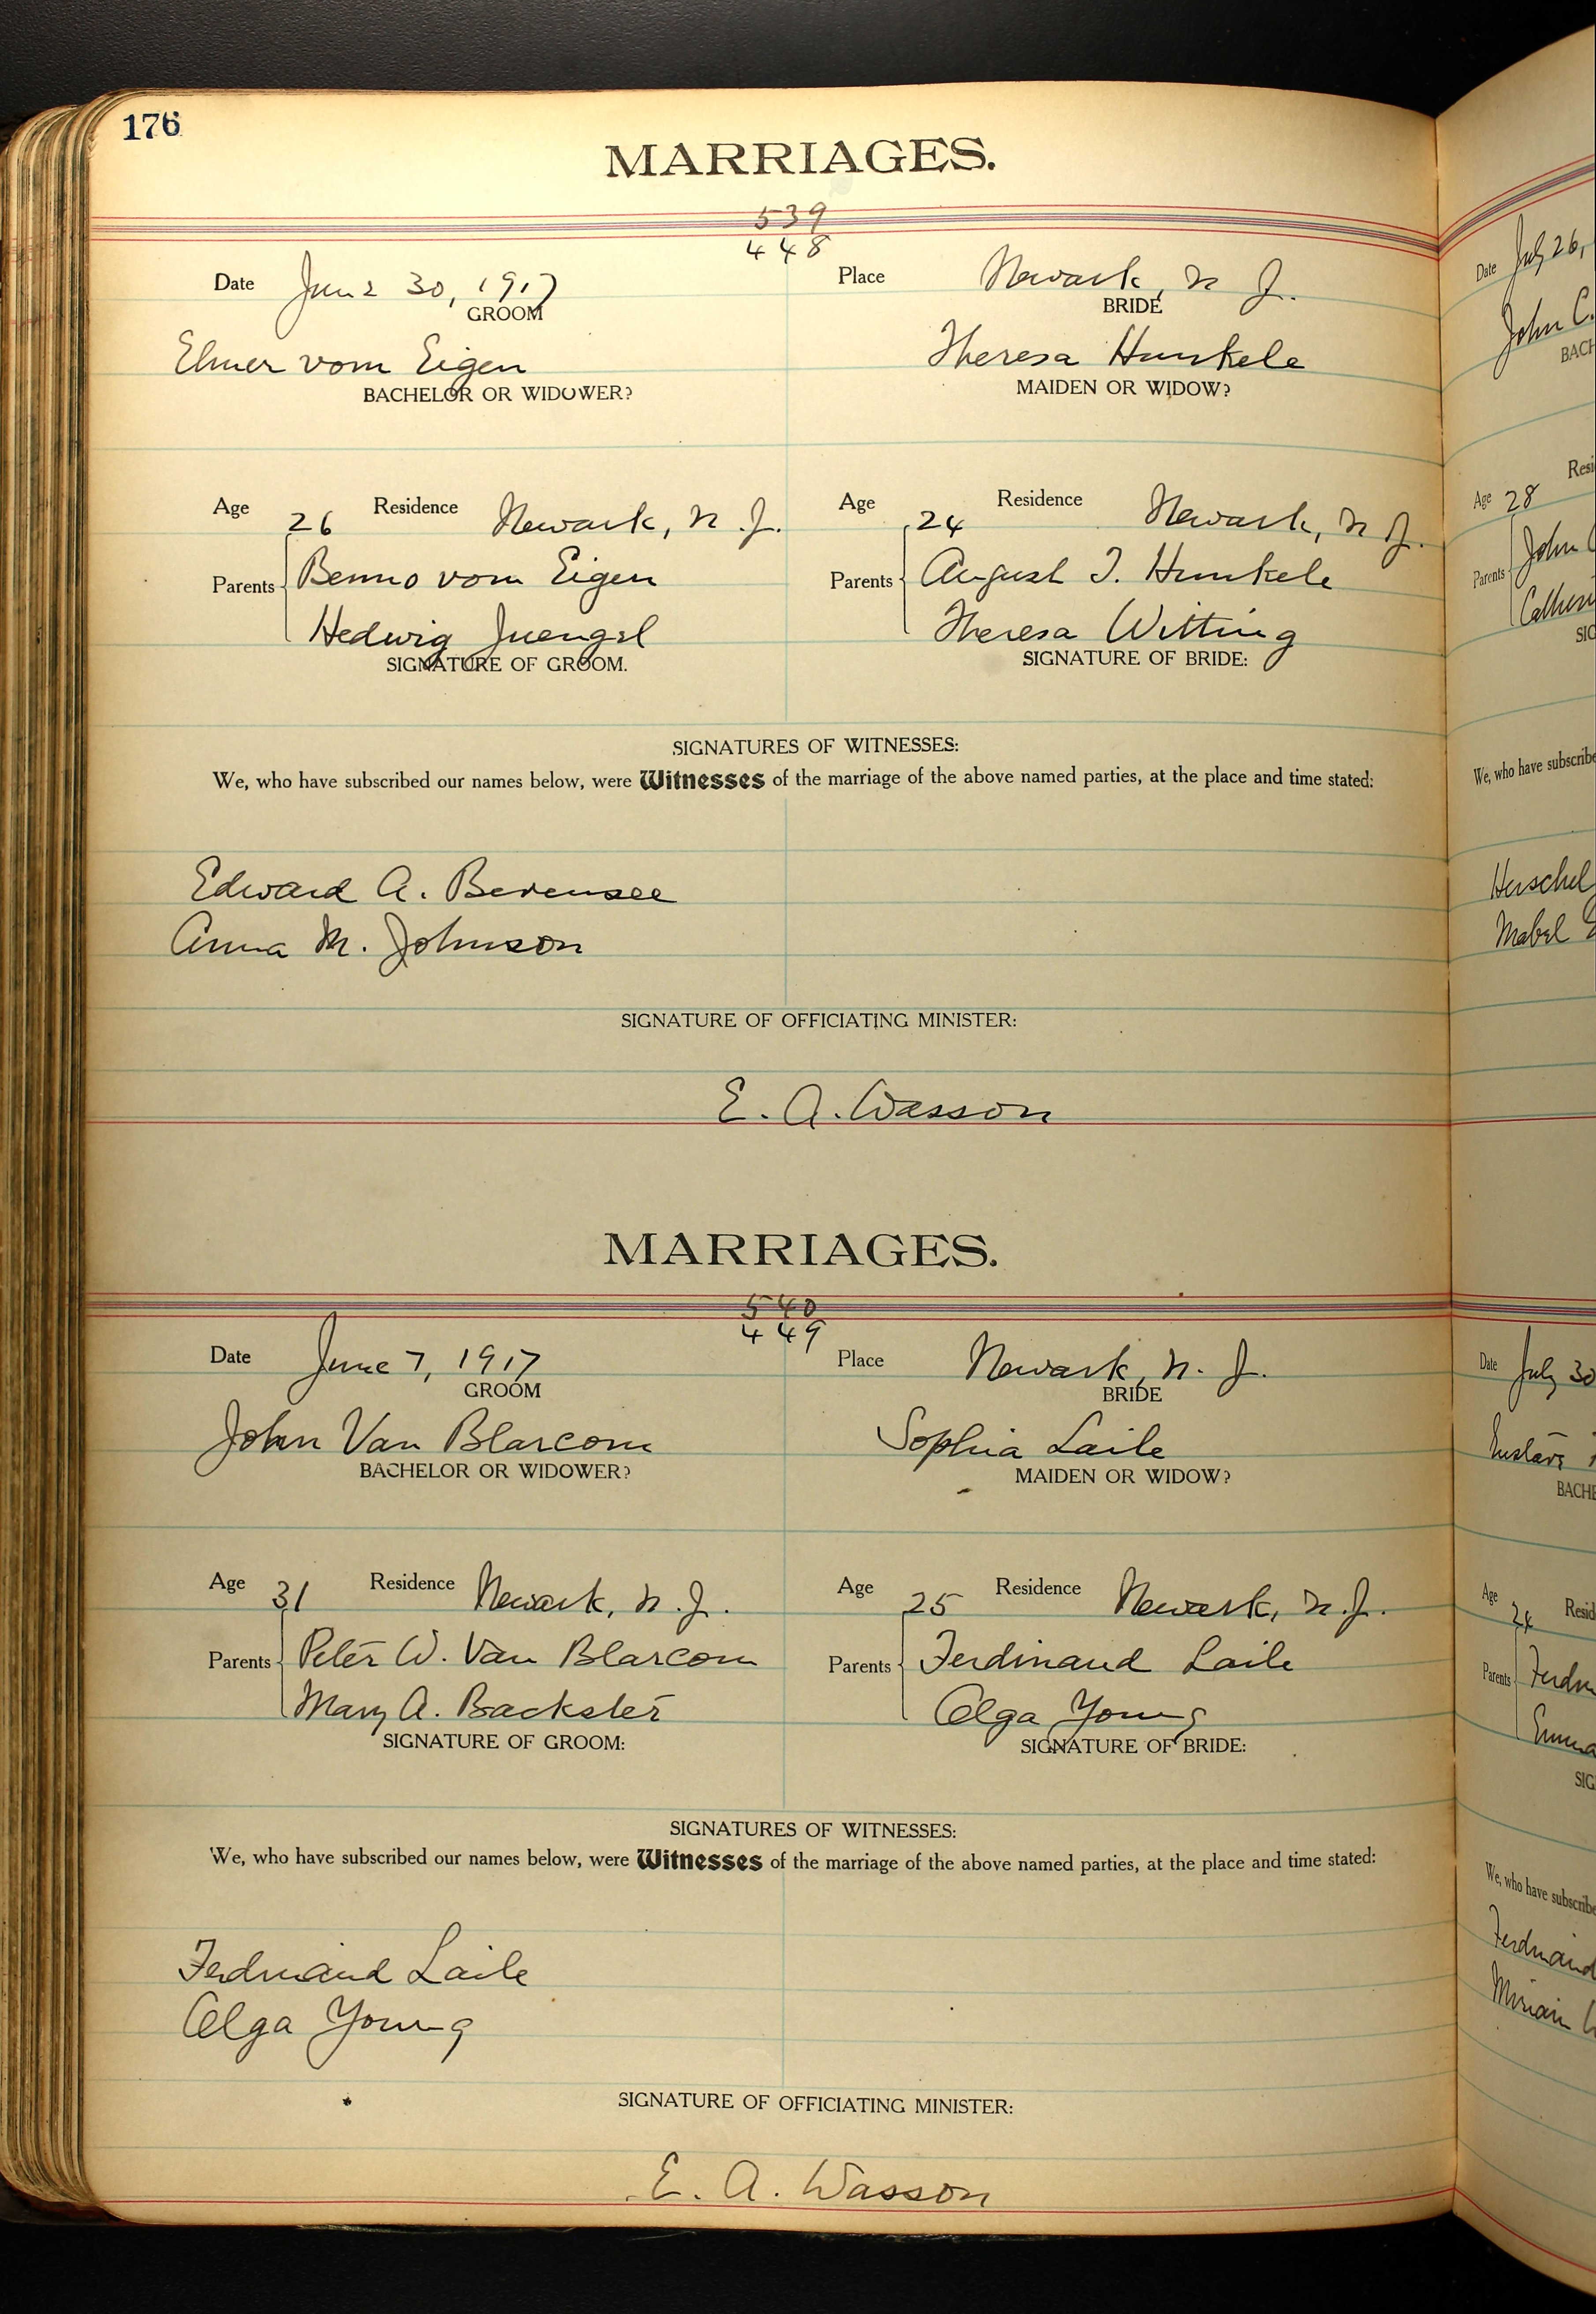 176
MARRIAGES.
539
448
Date June 30, 1917 Place Newark, N J.
GROOM BRIDE
Elmer vom Eigen Theresa Hunkele
BACHELOR OR WIDOWER? MAIDEN OR WIDOW?
Age 26 Residence Newark, N.J. Age 24 Residence Newark, N J.
Parents Benno vom Eigen Parents August J. Hunkele
Hedwig Juengel Theresa Witting
SIGNATURE OF GROOM. SIGNATURE OF BRIDE:
SIGNATURES OF WITNESSES:
We, who have subscribed our names below, were Witnesses of the marriage of the above named parties, at the place and time stated:
Edward A. Bevensee
Anna M. Johnson
SIGNATURE OF OFFICIATING MINISTER:
E. A. Wasson
MARRIAGES.
540
449
Date June 7, 1917 Place Newark, N. J.
GROOM BRIDE
John Van Blarcom Sophia Laile
BACHELOR OR WIDOWER? MAIDEN OR WIDOW?
Age 31 Residence Newark, N.J. Age 25 Residence Newark, N.J.
Parents Peter W. Van Blarcom Parents Ferdinand Laile
Mary A. Backster Olga Young
SIGNATURE OF GROOM: SIGNATURE OF BRIDE:
SIGNATURES OF WITNESSES:
We, who have subscribed our names below, were Witnesses of the marriage of the above named parties, at the place and time stated:
Ferdinand Laile
Olga Young
SIGNATURE OF OFFICIATING MINISTER:
E. A. Wasson
Date July 26,
John C.
BACH
Resi
Age 28
Parents John
SIG
We, who have subscribe
Herschel
Mabel
Date July 30
BACHE
Age 24 Resid
Parents
Emma
SIG
We, who have subscribe
Ferdinand
Miriam